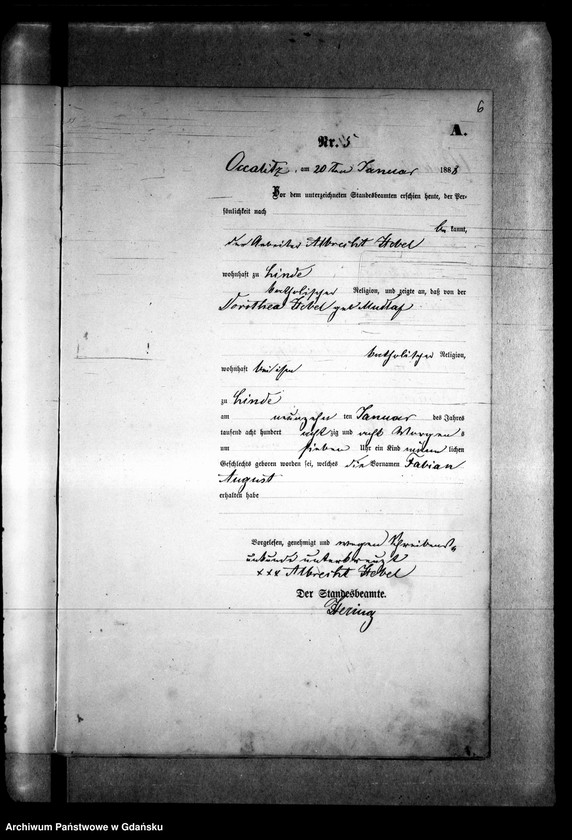 6
A.
Nr. 5
Occalitz, am 20 ten Januar 1888
Vor dem unterzeichneten Standesbeamten erschien heute, der Per-
sönlichkeit nach
be kannt,
der Arbeiter Albrecht Hebel
wohnhaft zu Linde
katholischer Religion, und zeigte an, daß von der
Dorothea Hebel geb.
katholischer Religion,
wohnhaft bei ihm
zu Linde
am neunzehn ten Januar des Jahres
tausend acht hundert acht zig und acht Morgens
um sieben Uhr ein Kind männ lichen
Geschlechts geboren worden sei, welches die Vornamen Fabian
August
erhalten habe
Vorgelesen, genehmigt und wegen Schreibens-
unkunde unterkreuzt
xxx Albrecht Hebel
Der Standesbeamte.
Hering
Archiwum Państwowe w Gdańsku